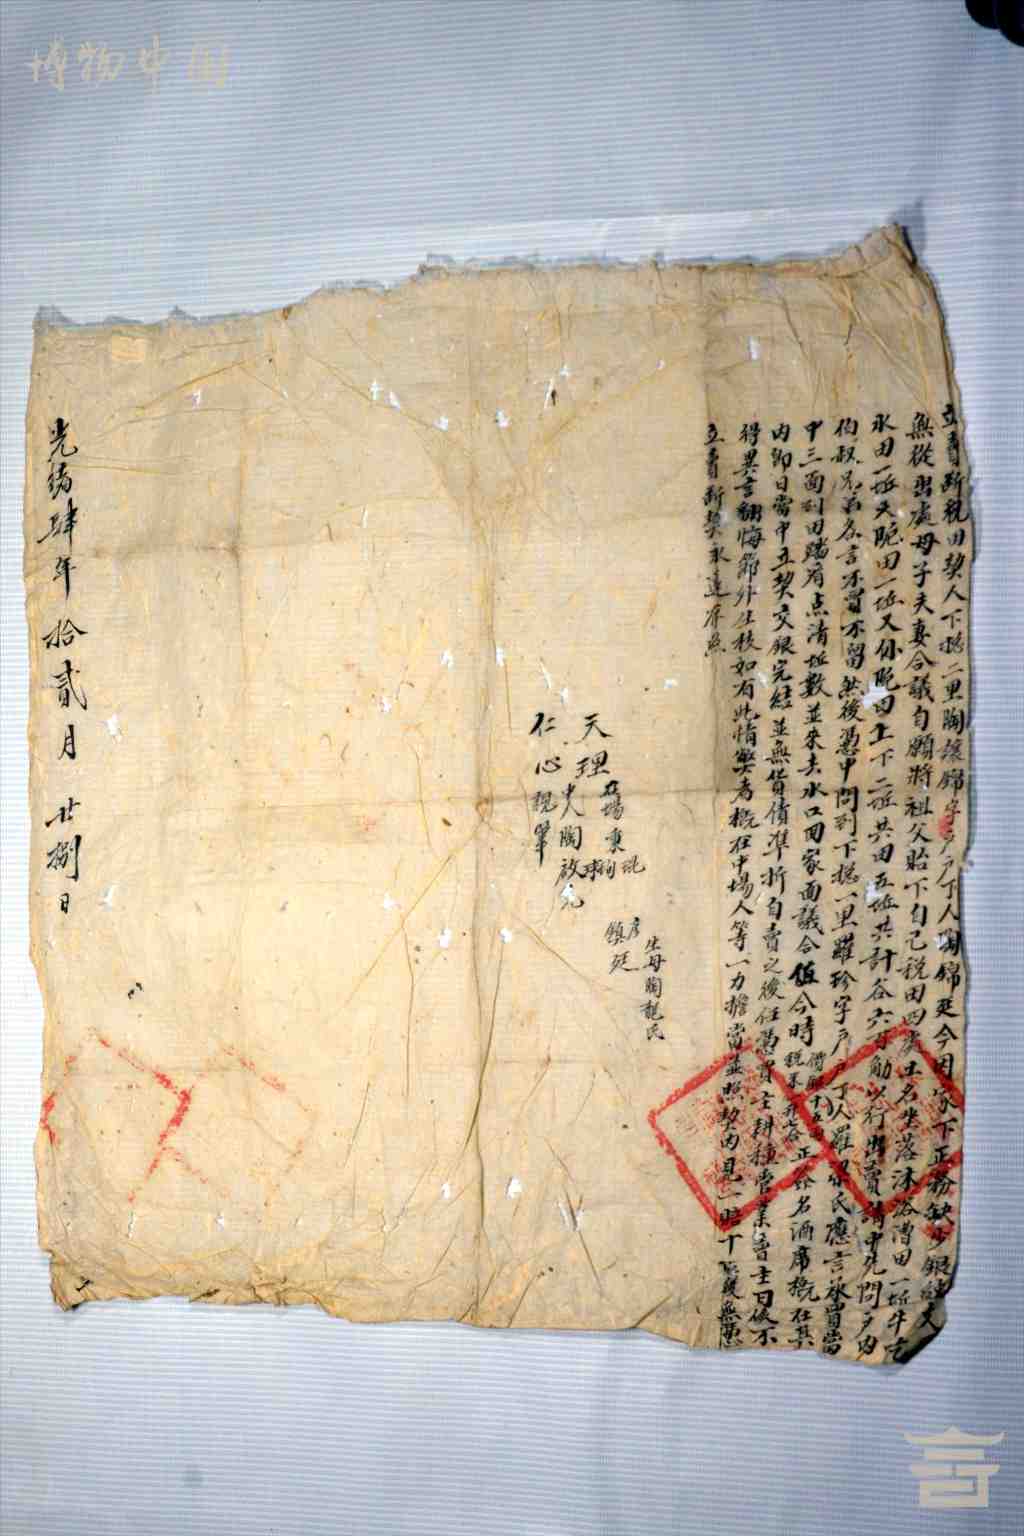 博物中国
立賣斷稅田契人下秘二里陶讓錦字戶戶丁人陶錦廷今因家下正務缺少銀錢支
無從出處母子夫妻合議自願將祖父貽下自己稅田四處土名坐落沐浴漕田一坵牛
水田一坵天䏝田一坵又䏝田上下二坵共田五坵共計谷六百觔以行出賣請中先問戶內
伯叔兄弟各言不買不留然後憑中問到下秘一里羅珍字戶戶丁人羅氏應言承買當
中三面到田踏看点清坵數並來去水口回家面議合值今時價銀十五両稅米正 名酒席概在其
內即日當中立契交銀完経並無貨債準折自賣之後任憑買主耕種管業賣主日後不
得異言翻悔節外生枝如有此情弊者概在中場人等一力擔當並照契內見一賠十恐後無憑
立賣斷契永遠存照
生母陶龍氏
彥鎮廷
在場
天理
中人陶啟元
仁心 親筆
光緒肆年拾貳月廿捌日